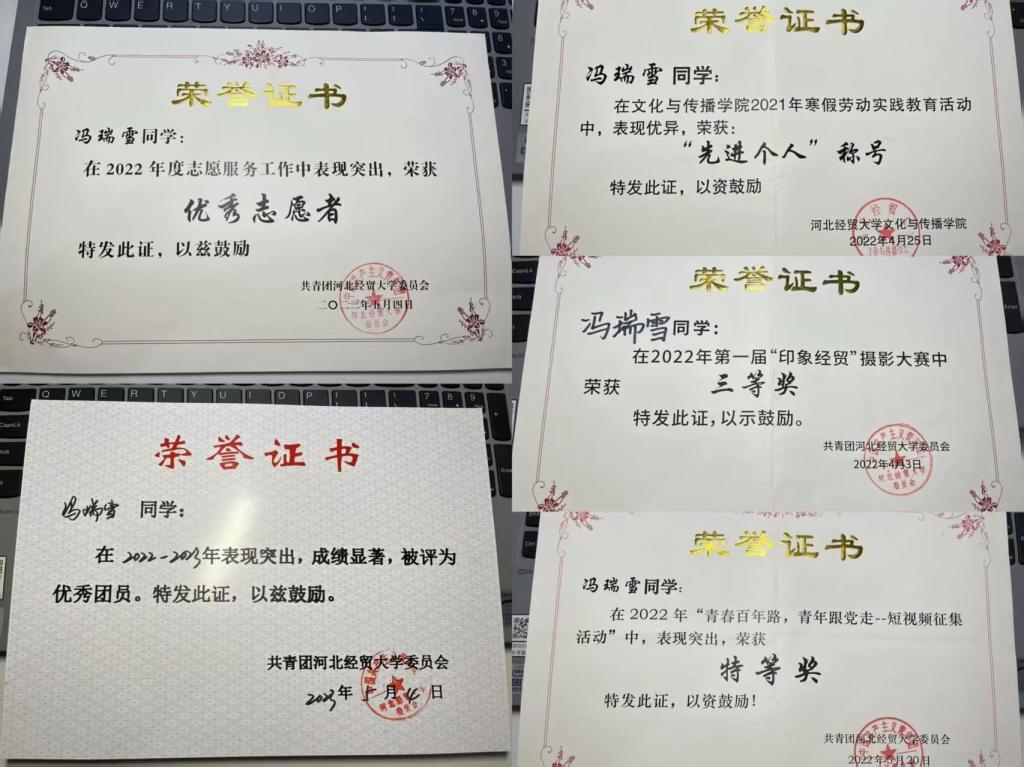 荣誉证书
冯瑞雪同学：
在 2022 年度志愿服务工作中表现突出，荣获
优秀志愿者
特发此证，以兹鼓励
共青团河北经贸大学委员会
二〇二三年五月四日
荣誉证书
冯瑞雪 同学：
在 2022-2023年表现突出，成绩显著，被评为
优秀团员。特发此证，以兹鼓励。
共青团河北经贸大学委员会
2023 年 5 月 4 日
荣誉证书
冯瑞雪 同学：
在文化与传播学院2021年寒假劳动实践教育活动
中，表现优异，荣获：
“先进个人”称号
特发此证，以资鼓励
河北经贸大学文化与传播学院
2022年4月25日
荣誉证书
冯瑞雪同学：
在2022年第一届“印象经贸”摄影大赛中
荣获 三等奖
特发此证，以示鼓励。
共青团河北经贸大学委员会
2022年4月3日
荣誉证书
冯瑞雪同学：
在 2022 年“青春百年路，青年跟党走--短视频征集
活动”中，表现突出，荣获
特等奖
特发此证，以资鼓励！
共青团河北经贸大学委员会
2022年5月20日